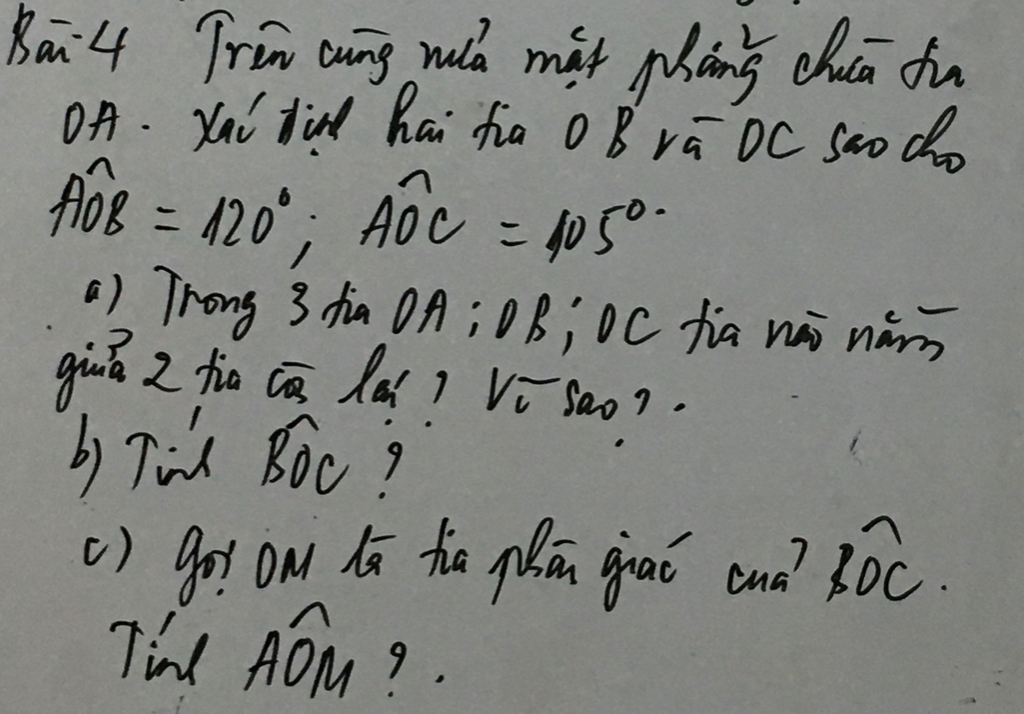 Bài 4 Trên cùng nửa mặt phẳng chứa tia
OA. Xác định hai tia OB và OC sao cho
AÔB = 120°; AÔC = 105°.
a) Trong 3 tia OA; OB; OC tia nào nằm
giữa 2 tia còn lại? Vì sao?.
b) Tính BÔC?
c) Gọi OM là tia phân giác của BÔC.
Tính AÔM?.